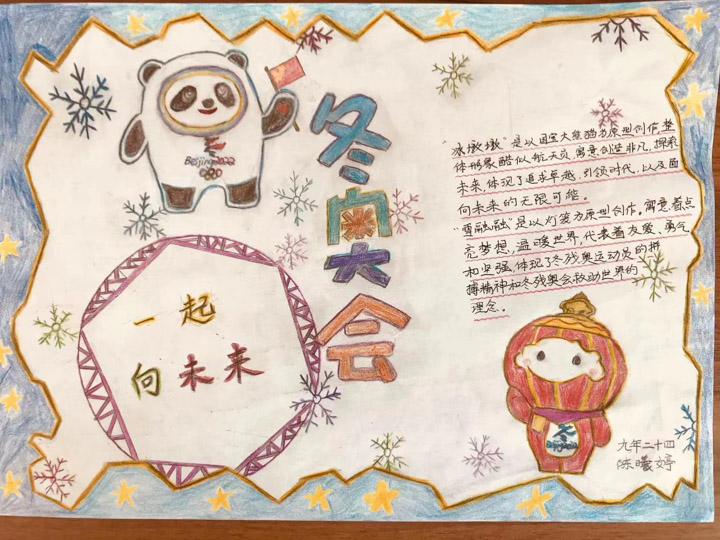 Beijing2022
冬
奥
会
一起
向未来
“冰墩墩”是以国宝大熊猫为原型创作,整
体形象酷似航天员,寓意创造非凡,探索
未来,体现了追求卓越,引领时代,以及面
向未来的无限可能。
“雪融融”是以灯笼为原型创作。寓意着点
亮梦想,温暖世界,代表着友爱、勇气
和坚强,体现了冬残奥运动员的拼
搏精神和冬残奥会救助世界的
理念。
九年二十四
陈曦婷